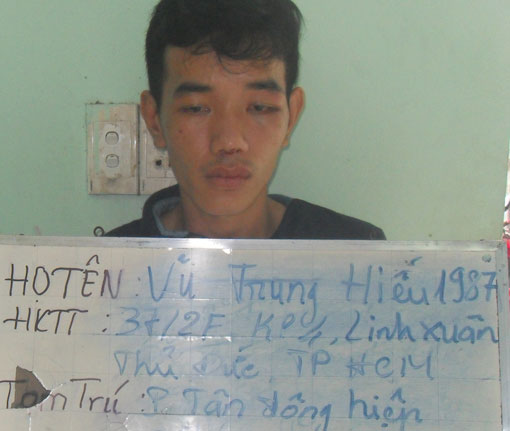 HỌ TÊN : Vũ Trung Hiếu 1987
HKTT : 37/2F KP4, Linh xuân
Thủ Đức, TP HCM
Tạm Trú : P Tân đông hiệp